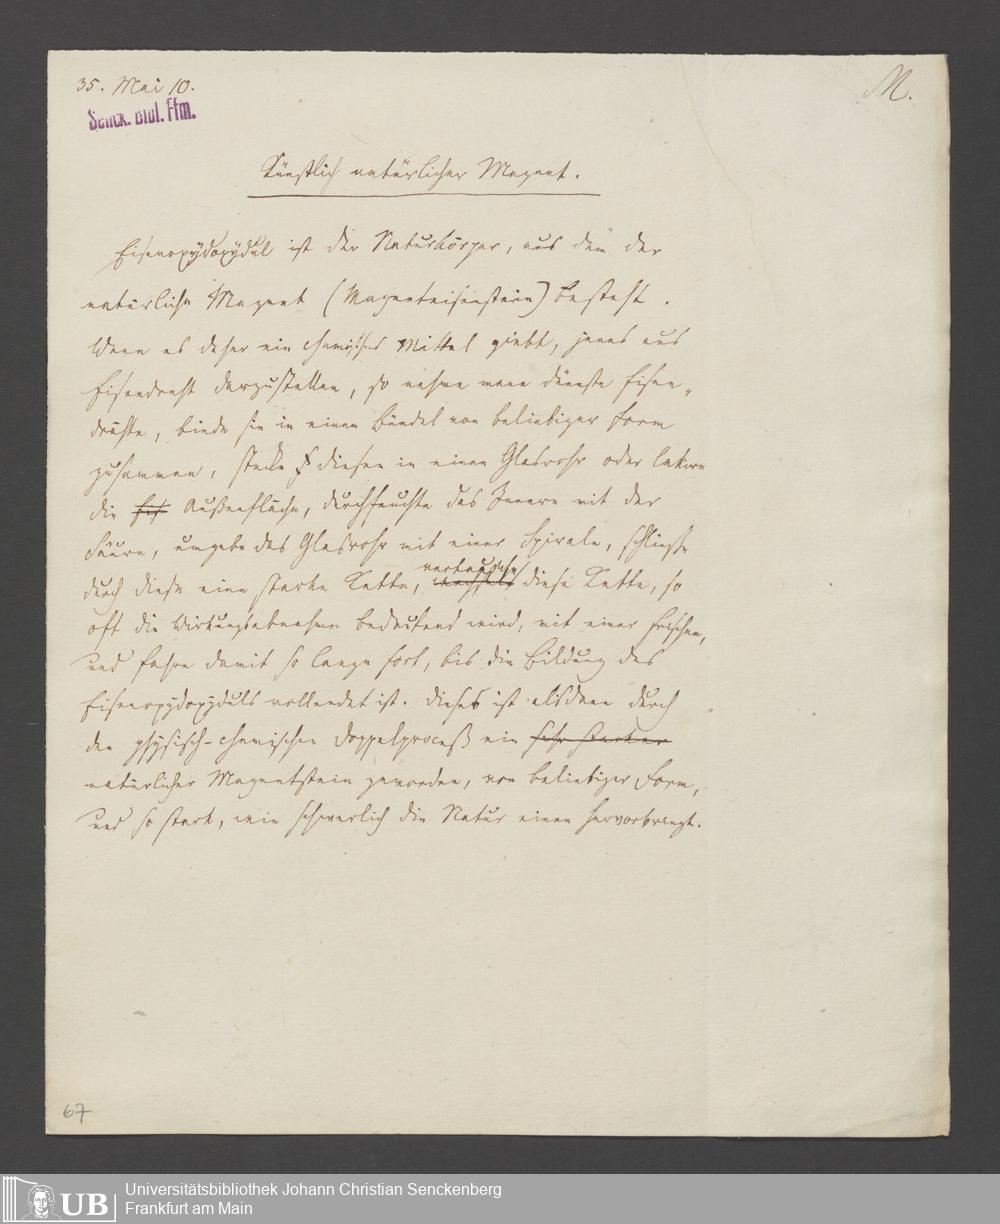 35. Mai 10.
M.
Senck. Bibl. Ffm.
Künstlich natürlicher Magnet.
Eisenoxydoxydul ist der Naturkörper, aus dem der
natürliche Magnet (Magneteisenstein) besteht.
Wenn es daher ein chemisches Mittel giebt, jenes aus
Eisendraht darzustellen, so nehme man dünnste Eisen-
drähte, binde sie in einen Bündel von beliebiger Form
zusammen, stecke diesen in einen Glasrohr oder
die Außenfläche, durchfeuchte das Innere mit der
Säure, umgebe das Glasrohr mit einer Spirale, schließe
durch diese eine starke Kette, vertausche diese Kette, so
oft die Wirkungsabnahme bedeutend wird, mit einer frischen,
und fahre damit so lange fort, bis die Bildung des
Eisenoxydoxyduls vollendet ist. Dieses ist alsdann durch
den physisch-chemischen Doppelproceß ein sehr starker
natürlicher Magnetstein geworden, von beliebiger Form,
und so stark, wie schwerlich die Natur einen hervorbringt.
67
UB
Universitätsbibliothek Johann Christian Senckenberg
Frankfurt am Main